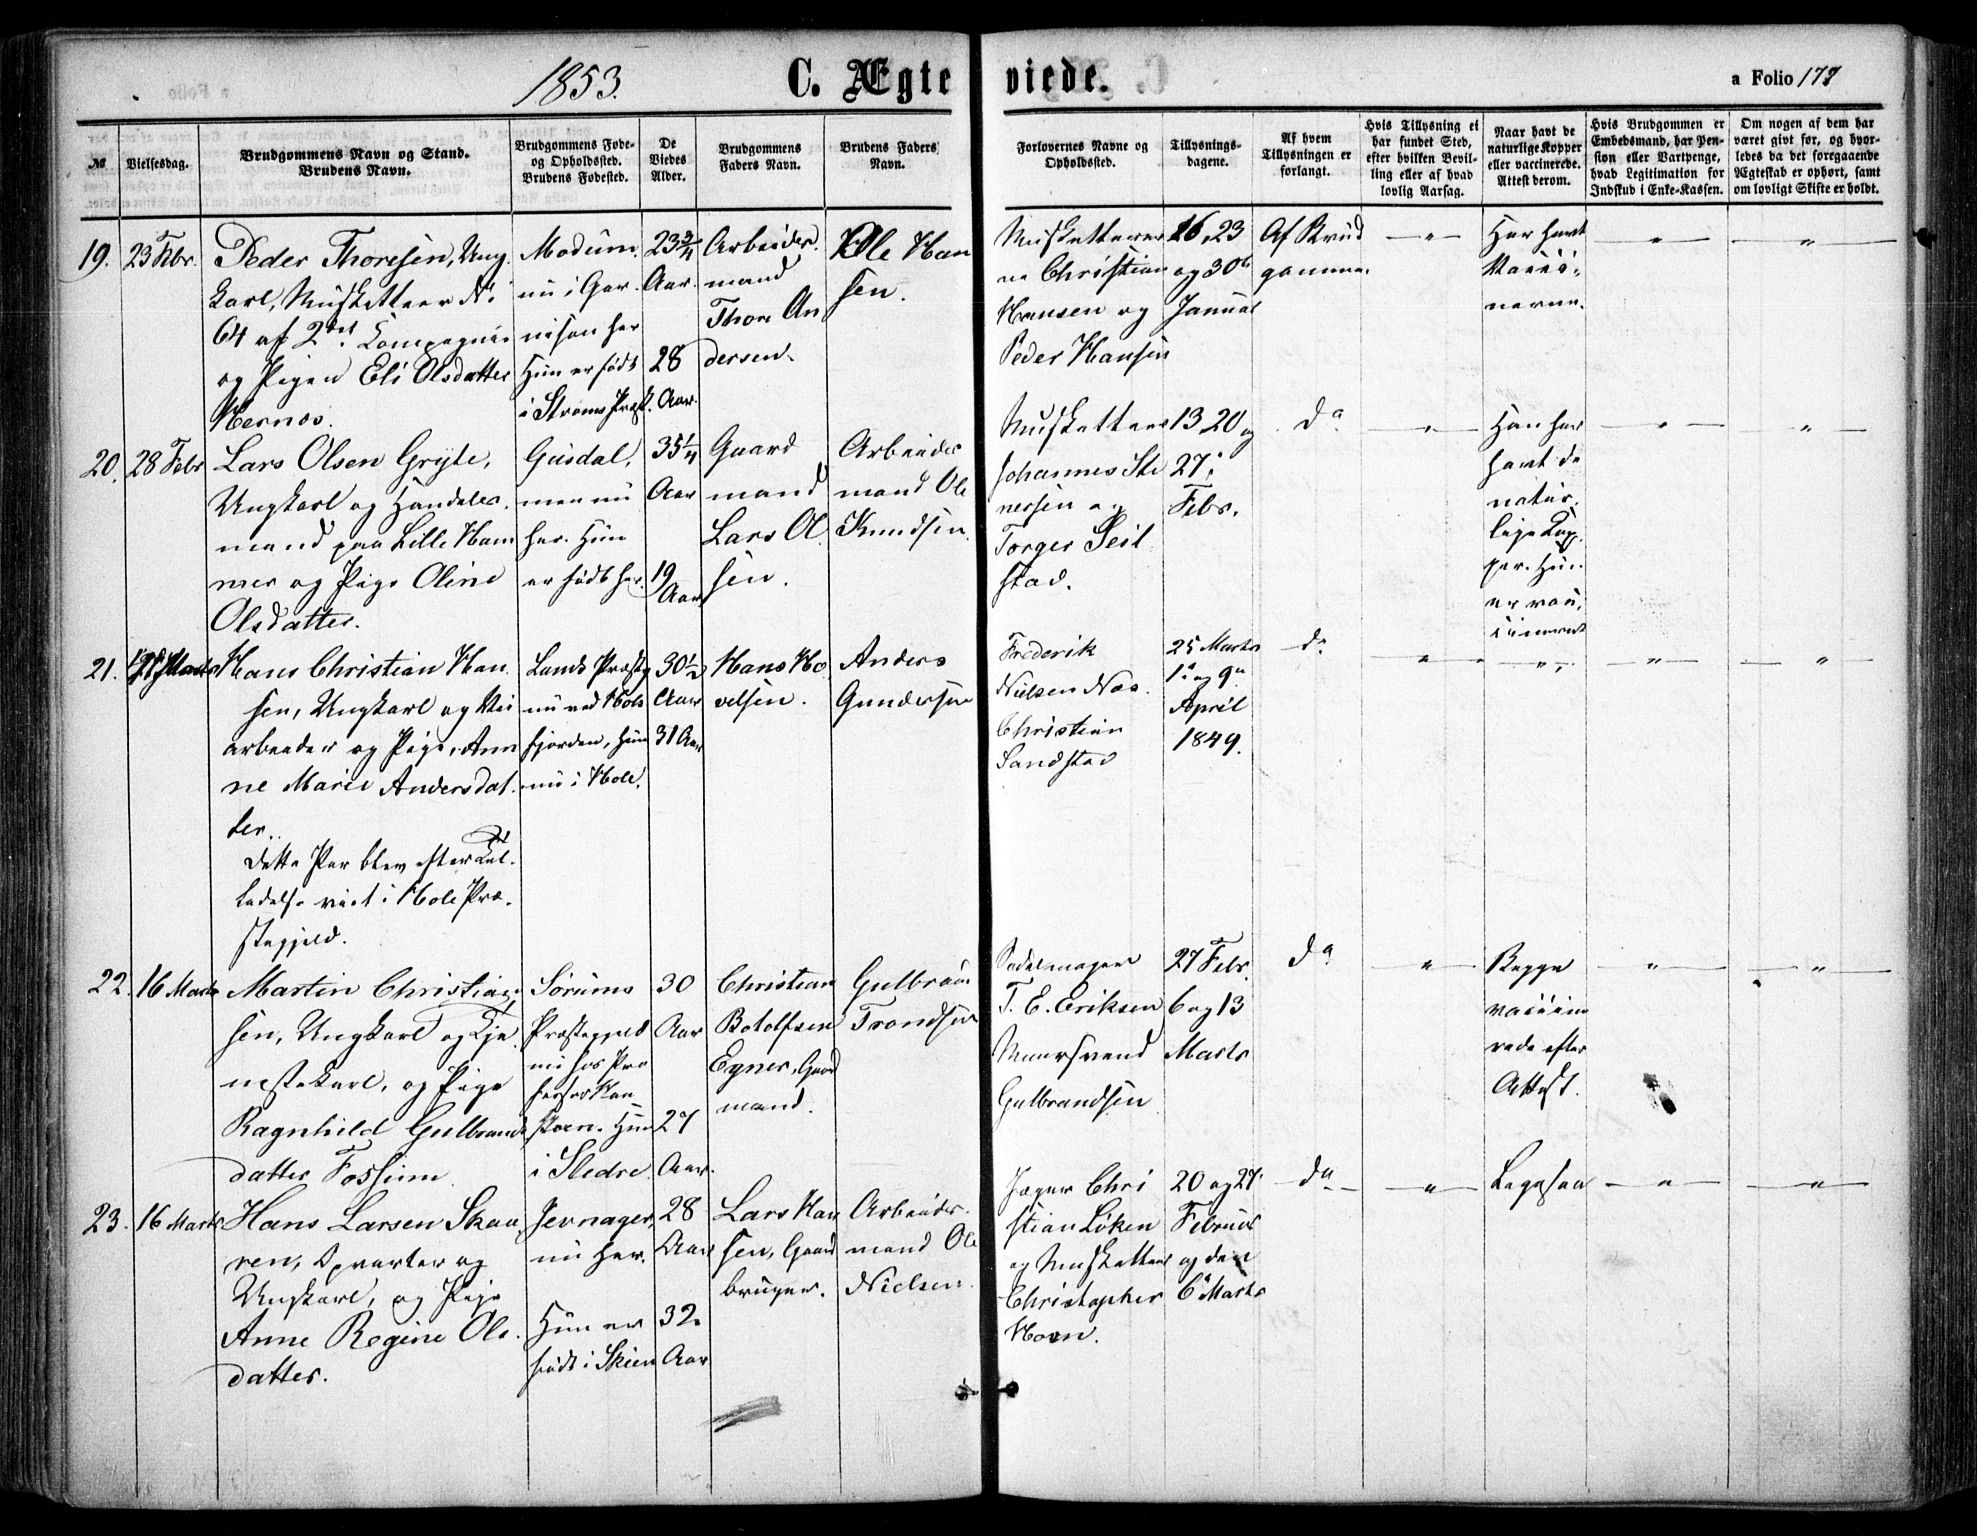 1853.
C. Ægte viede.
a Folio 177
№
Vielsesdag.
Brudgommens Navn og Stand.
Brudens Navn.
Brudgommens Føde-
og Opholdssted.
Brudens Fødested.
De
Viedes
Alder.
Brudgommens
Faders Navn.
Brudens Faders
Navn.
Forlovernes Navne og
Opholdssted.
Tillysnings-
dagene.
Af hvem
Tillysningen er
forlangt.
Hvis Tillysning ei
har fundet Sted,
efter hvilken Bevil-
ling eller af hvad
lovlig Aarsag.
Naar havt de
naturlige Kopper
eller vaccinerede.
Attest derom.
Hvis Brudgommen er
Embedsmand, har Pen-
sion eller Vartpenge,
hvad Legitimation for
Indskud i Enke-Kassen.
Om nogen af dem har
været gift før, og hvor-
ledes da det foregaaende
Ægteskab er ophørt, samt
om lovligt Skifte er holdt.
19.
23 Febr.
Peder Thoresen, Ung
karl, Musketteer No
64 af 2det Compagnie
og Pigen Eli Olsdatter
Hernæs.
Modum,
nu i Gar
nison her
Hun er født
i Strøms Præst.
23 3/4
Aar.
28
Aar.
Arbeider.
mand
Thore An
dersen.
Ole Han
sen.
Musketterer
ne Christian
Hansen og
Peder Hansen
16, 23
og 30te
Januar
Af Brud
gommen.
Har havt
Vacci-
nerne.
20.
28 Febr
Lars Olsen Gryte,
Ungkarl og Handels
mand paa Lille Ham
mer og Pige Oline
Olsdatter.
Gusdal,
men nu
her. Hun
er født her.
35 1/4
Aar
19
Aar
Gaard
mand
Lars Ol
sen.
Arbeider
mand Ole
Knudsen
Musketteer
Johannes Ste
nersen og
Torger Seil
stad.
13 20 og
27 i
Febr.
do
Han har
havt de
natur
lige Kop
per. Hun
er vac
cineret
21.
Marts
Hans Christian Han
sen, Ungkarl og Vei
arbeider og Pige, Ann
ne Marie Andersdat
ter.
Dette Par blev efter Til-
ladelse viet i Hole Præ-
stegjeld.
Lands Præstg
nu ved Hols
fjorden, Hun
nu i Hole.
30 1/2
Aar
31 Aar
Hans Ho
velsen.
Anders
Gundersen
Frederik
Nielsen Næs.
Christian
Sandstad
25 Marts
1ste og 9de
April
1849.
do
22.
16 Marts
Martin Christian
sen, Ungkarl og Tje
nestekarl, og Pige
Ragnhild Gulbrands
datter Fossum
Sørums
Præstegjeld
nu hos Pro
fessor Han
steen. Hun
i Sledre
30
Aar
27
Aar.
Christian
Botolfsen
Egner, Gaard
mand.
Gulbran
Trondsen
Sadelmager
T. E. Eriksen
Muursvend
Gulbrandsen
27 Febr.
6 og 13
Marts
do
Begge
vaccine
rede efter
Attest.
23.
16 Marts
Hans Larsen Skaa
ren, Opvarter og
Ungkarl, og Pige
Anne Regine Ols
datter.
Jevnager,
nu her.
Hun er
født i Skien
28
Aar
32
Aar
Lars Han
sen, Gaard
bruger.
Arbeider
mand Ole
Nielsen
Jæger Chri
stian Løken
og Musketteer
Christopher
Horn.
20 og 27
Februar
og den
6te Marts
do
Ligesaa